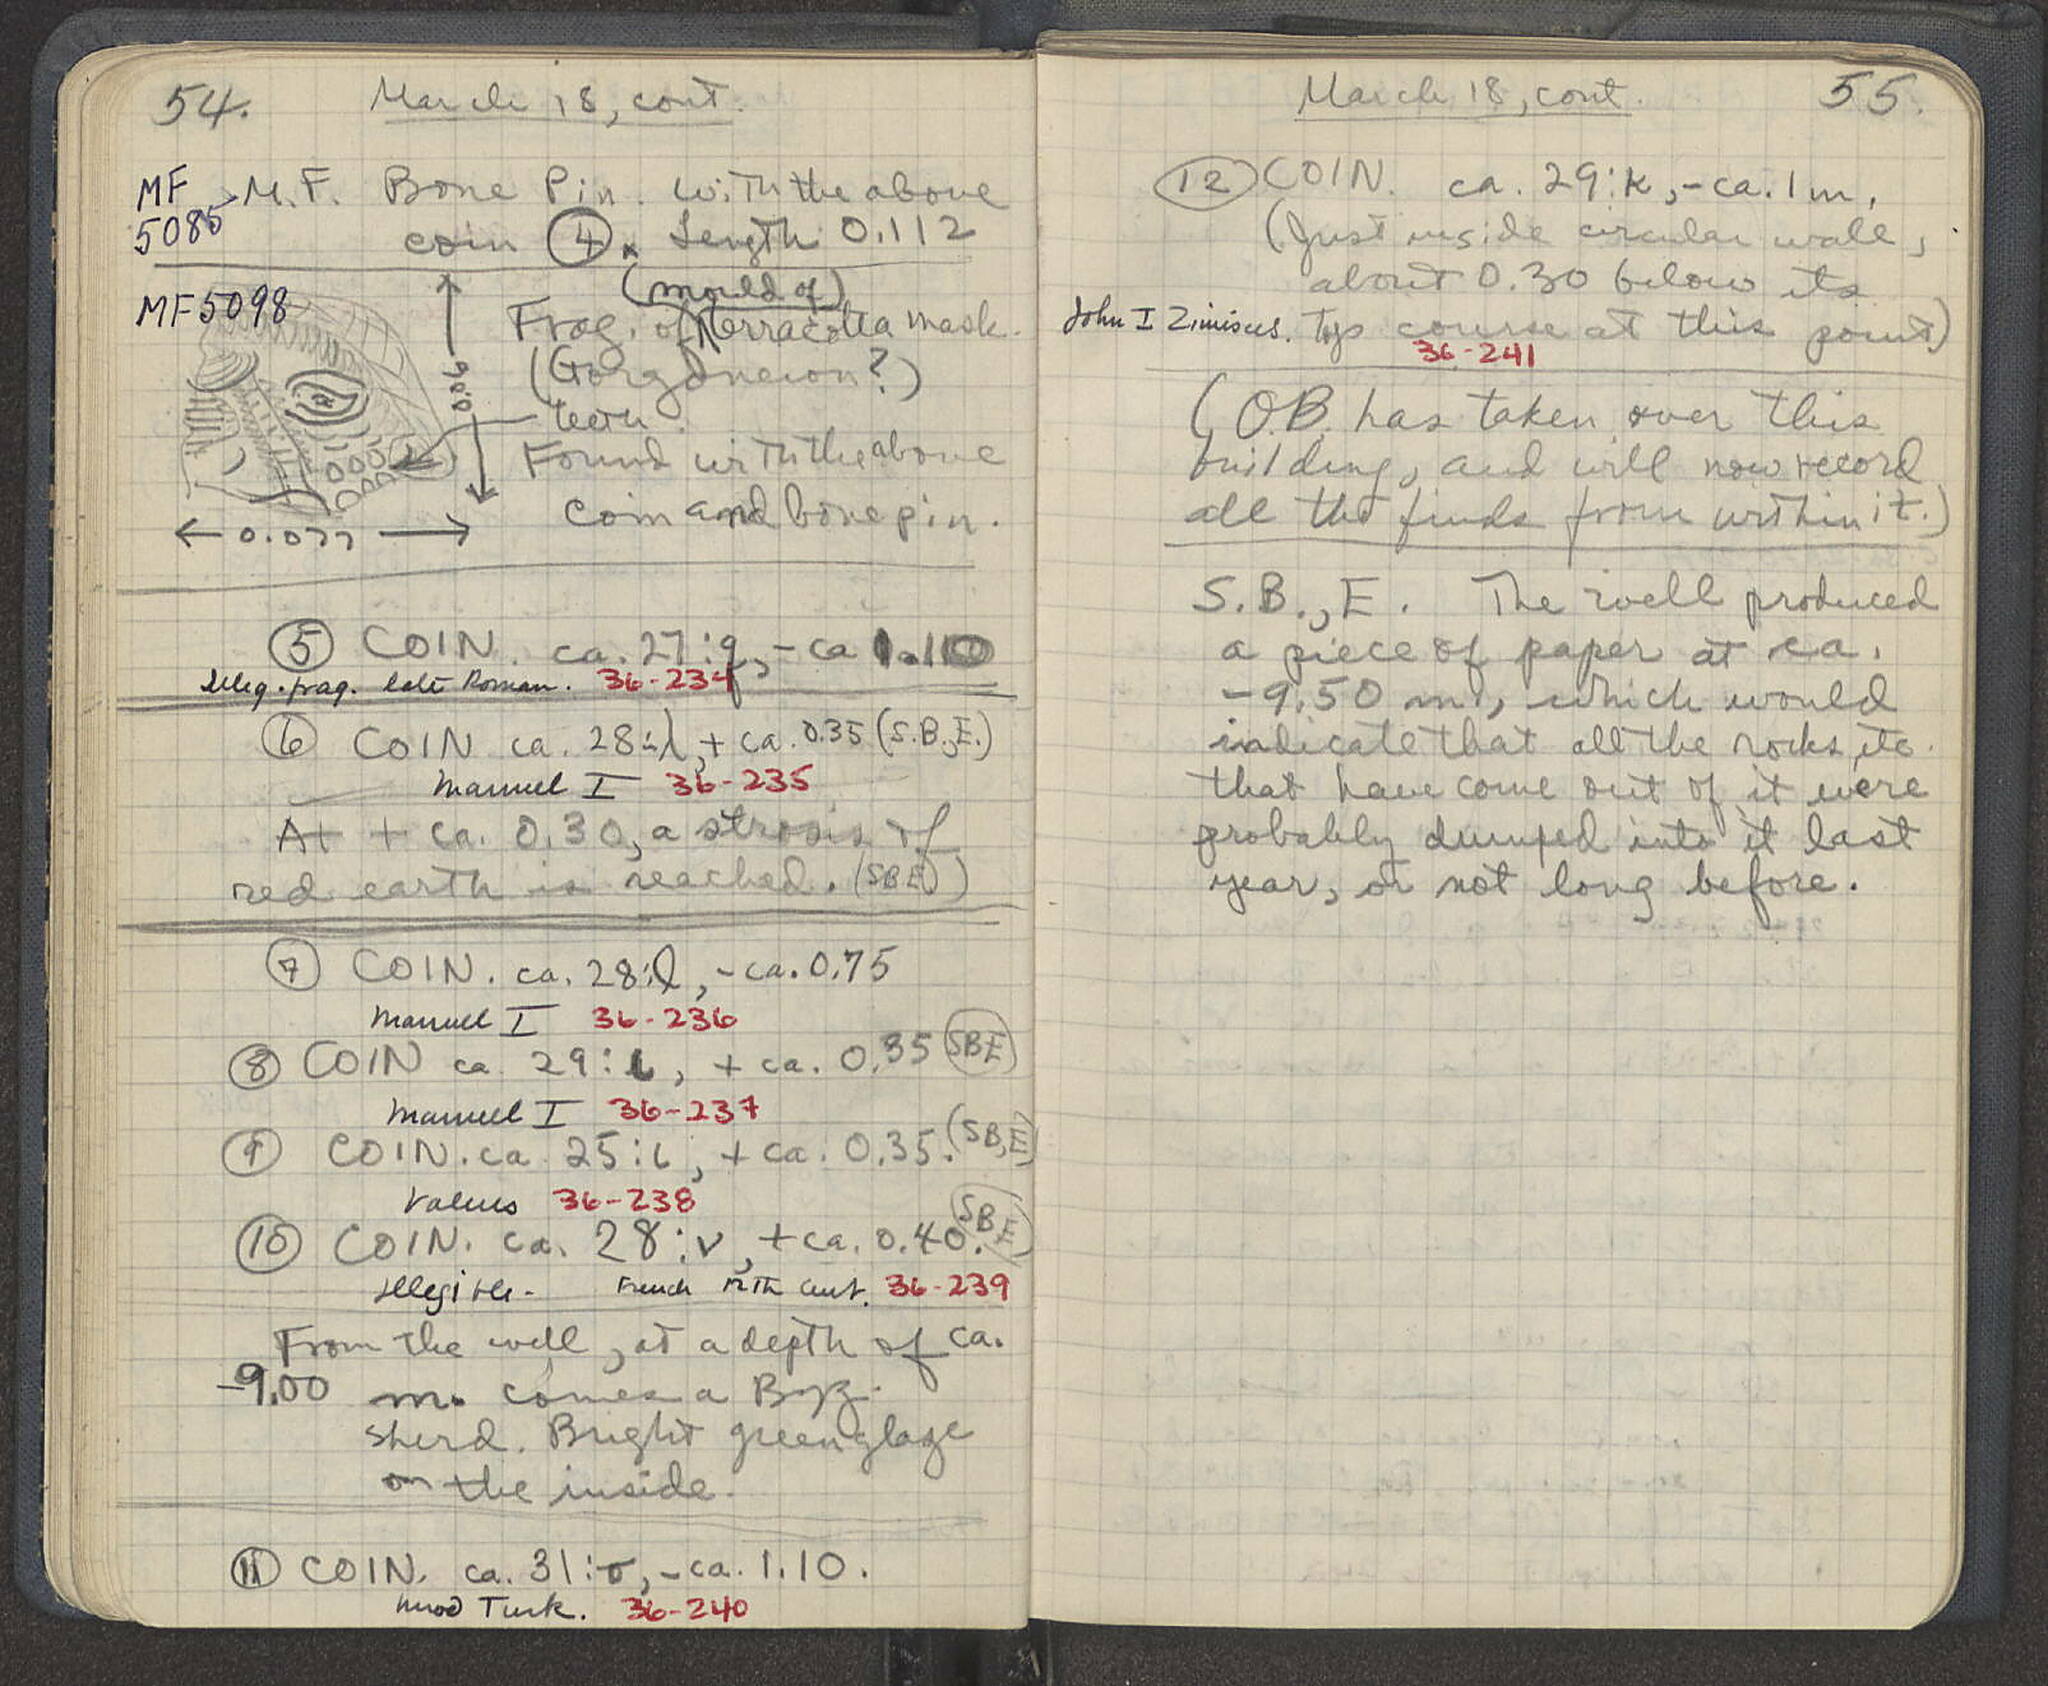 54. March 18, cont.
MF 5085 M.F. Bone Pin. with the above
coin ④. Length 0.112
MF5098
(mould of)
Frag. of terracotta mask.
(Gorgoneion?)
teeth.
0.06
Found with the above
coin and bone pin.
0.077
⑤ COIN. ca. 27:q, -ca 1.10
Illeg. frag. late Roman. 36-234
⑥ COIN ca. 28:λ, + ca. 0.35 (S.B.,E.)
Manuel I 36-235
At + ca. 0.30, a strosis of
red earth is reached. (SBE)
⑦ COIN. ca. 28:λ, -ca. 0.75
Manuel I 36-236
⑧ COIN ca. 29:ι, + ca. 0.35 (SBE)
Manuel I 36-237
⑨ COIN. ca 25:ι, + ca. 0.35. (SB,E)
Valens 36-238
⑩ COIN. ca. 28:ν, +ca. 0.40. (SB,E)
Illegible - French 12th cent. 36-239
From the well, at a depth of ca.
-9.00 m. comes a Byz.
sherd. Bright green glaze
on the inside.
⑪ COIN. ca. 31:σ, -ca. 1.10.
Mod Turk. 36-240
March 18, cont. 55.
⑫ COIN. ca. 29:κ, -ca. 1 m,
(Just inside circular wall,
about 0.30 below its
John I Zimisces. top course at this point)
36-241
(O.B. has taken over this
building, and will now record
all the finds from within it.)
S.B.,E. The well produced
a piece of paper at ca.
-9.50 m., which would
indicate that all the rocks, etc.
that have come out of it were
probably dumped into it last
year, or not long before.